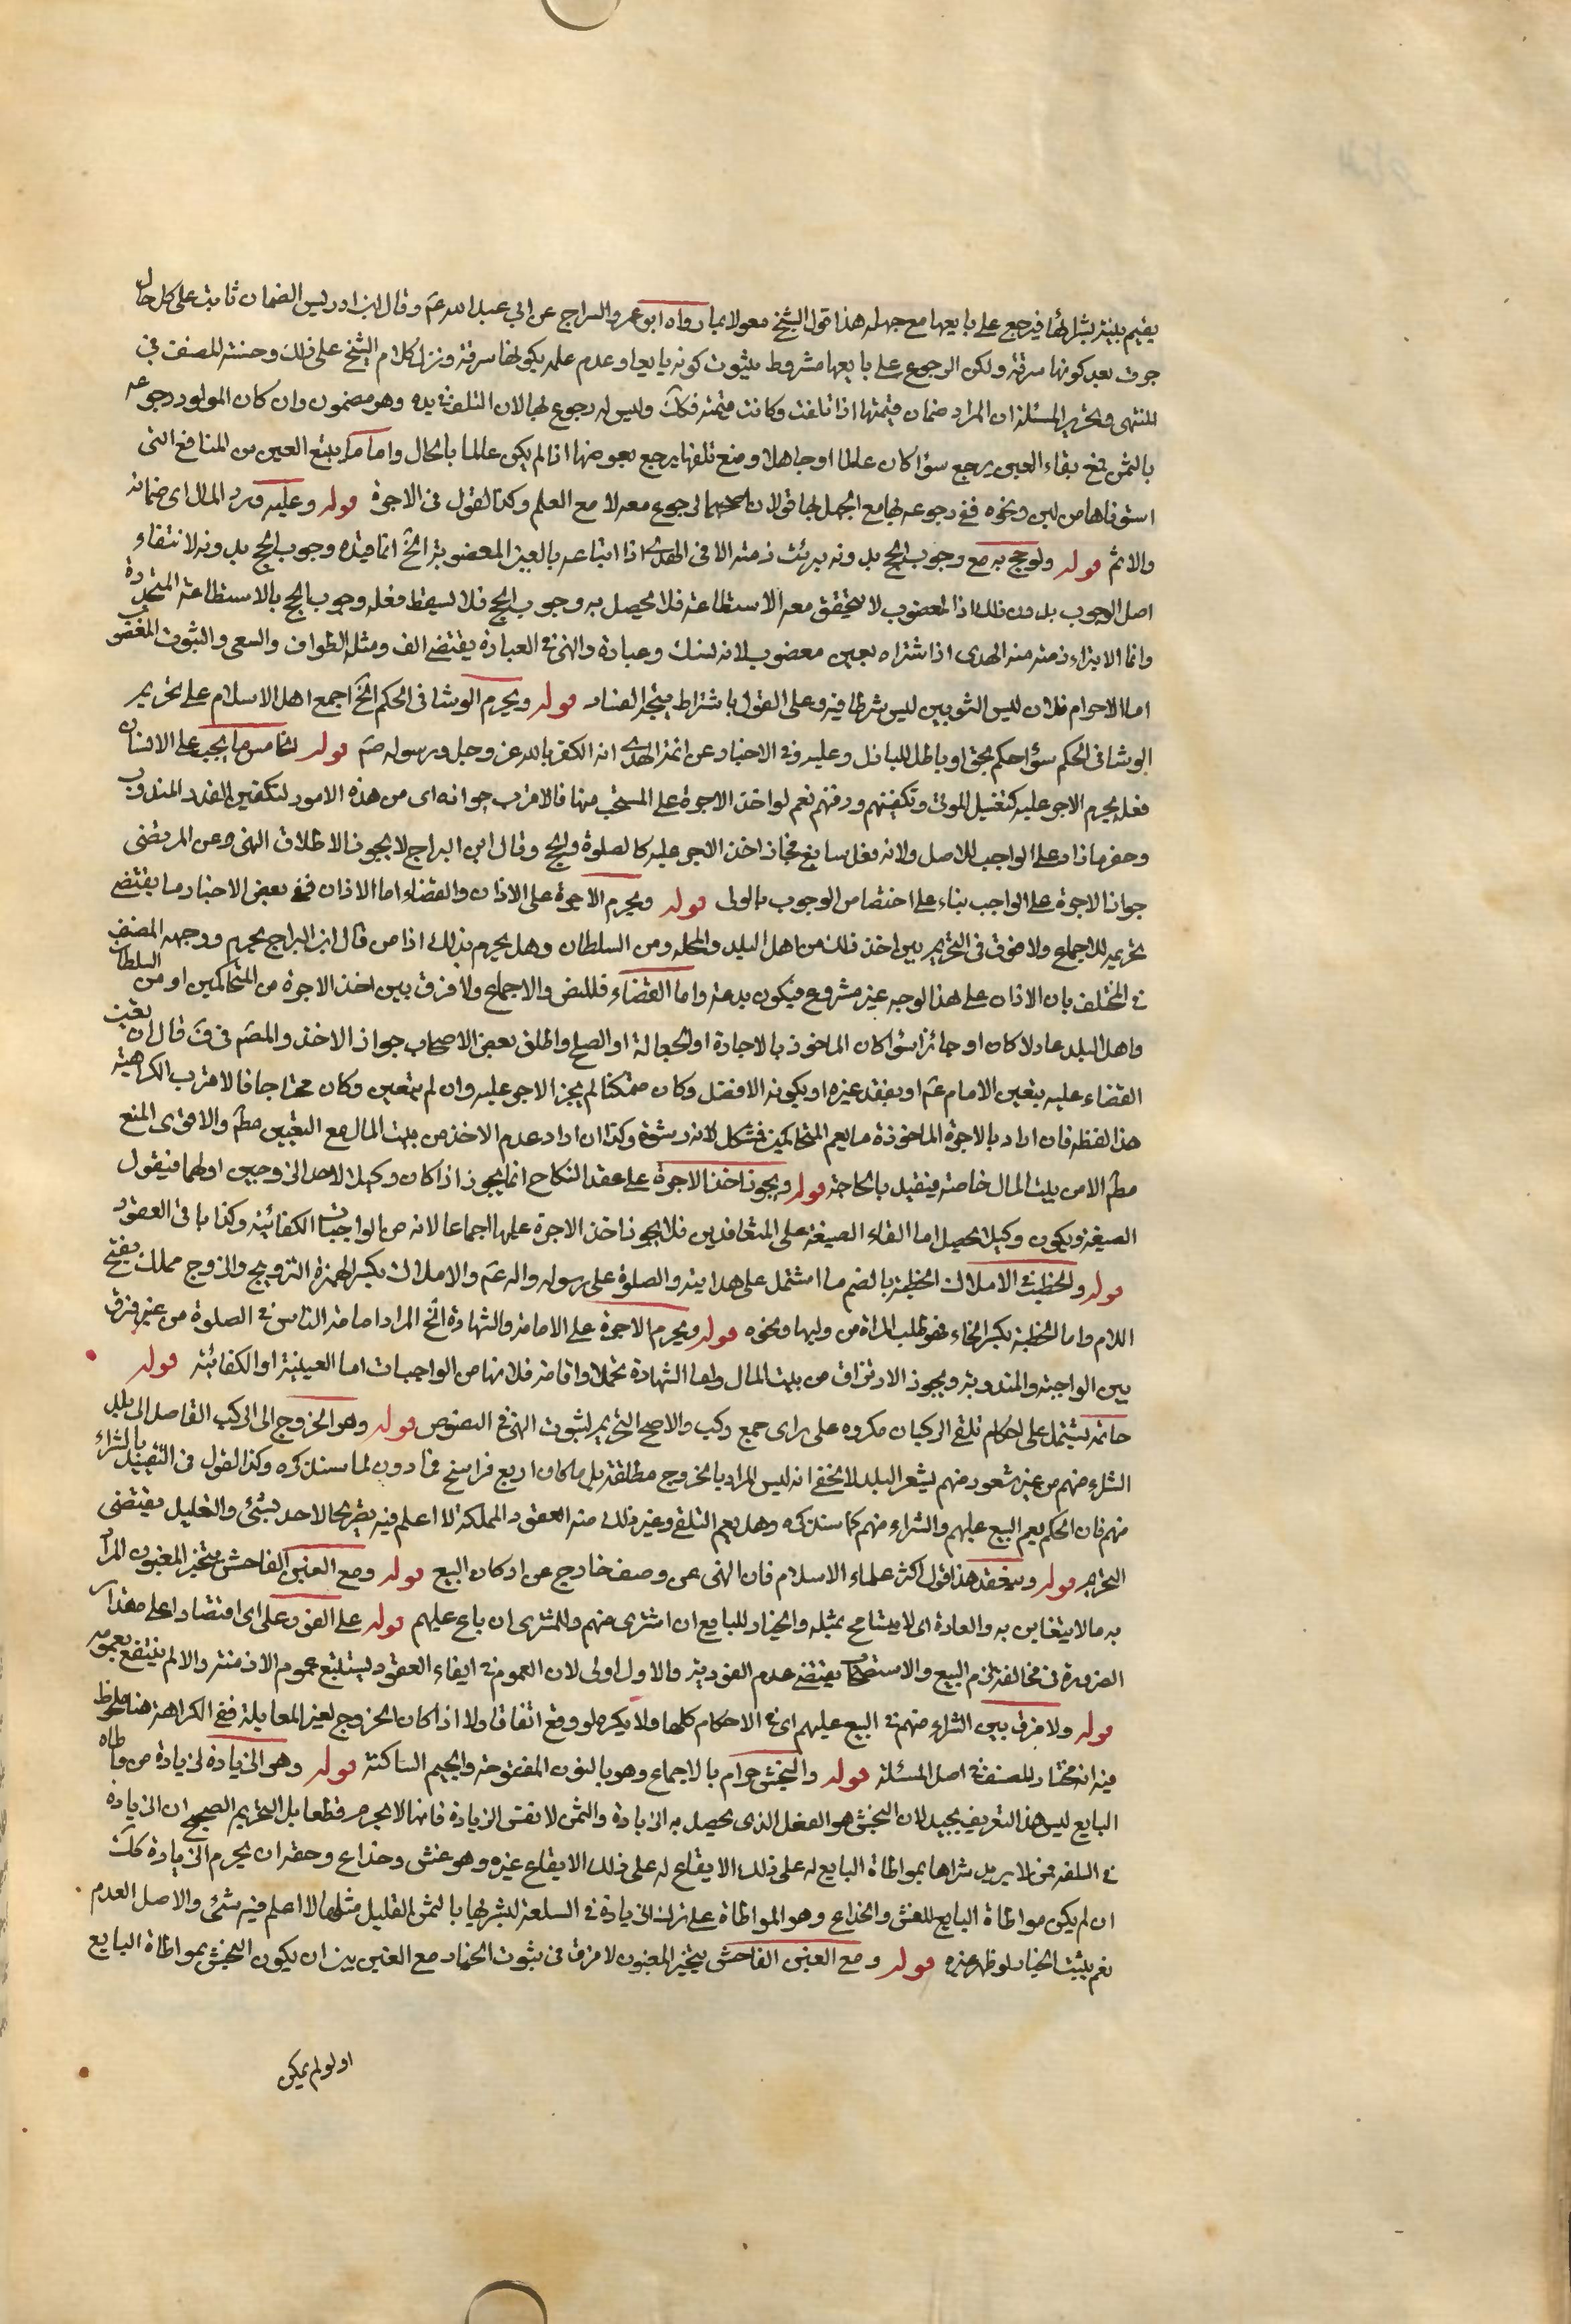 يقيم بينة بشرائها فيرجع على بايعها مع جهله هذا قول الشيخ معولا بما رواه ابو عمر والسراج عن ابي عبد الله عم وقال ابن ادريس الضمان ثابت على كل حال
جرت بعد كونها سرقة ولكن الرجوع على بايعها مشروط بثبوت كونه بايعا وعدم علمه بكونها سرقة ونزل كلام الشيخ على ذلك وحسنه المصنف في
المنتهى وتحرير المسئلة ان المراد ضمان قيمتها اذا تلفت وكانت قيمته فكك وليس له رجوع بها لان التلف في يده وهو مضمون وان كان المولود رجوعه
بالثمن فمع بقاء العين يرجع سؤا كان عالما او جاهلا ومع تلفها يرجع بعوضها اذا لم يكن عالما بالحال واما ما يتبع العين من المنافع التي
استوفاها من لبن ونحوه ففي رجوعه بها مع الجهل بها قولان اصحهما الرجوع معه لا مع العلم وكذا القول في الاجرة قوله وعليه وزر المال اى ضمانه
والاثم قوله ولو حج به مع وجوب الحج بدونه برئت ذمته الا في الهدى اذا ابتاعه بالعين المغصوبة الخ انما قيده وجوب الحج بدونه لانتفاء
اصل الوجوب بدون ذلك اذ المغصوب لا يتحقق معه الاستطاعة فلا يحصل به وجوب الحج فلا يسقط فعله وجوب الحج بالاستطاعة المتجددة
وانما لا يبراء ذمته منه الهدى اذا اشتراه بعين مغصوب لانه نسك وعبادة والنهى في العبادة يقتضى الف ومثله الطواف والسعى والثوب المغصوب
اما الاحرام فلان لبس الثوبين ليس شرطا فيه وعلى القول باشتراط يتجه الفساد قوله ويحرم الرشا في الحكم الخ اجمع اهل الاسلام على تحريم
الرشا في الحكم سؤا حكم بحق او باطل للباذل وعليه وفي الاخبار عن ائمة الهدى انه الكفر بالله عز وجل ورسوله صم قوله الخامس ما يجب على الانسان
فعله يحرم الاجر عليه كتغسيل الموتى وتكفينهم ودفنهم نعم لو اخذ الاجرة على المستحب منها فالاقرب جوازه اى من هذه الامور لتكفين القدر المندوب
وحفر ما زاد على الواجب للاصل ولانه فعل سايغ فجاز اخذ الاجر عليه كالصلوة والحج وقال ابن البراج لا يجوز لاطلاق النهى وعن المرتضى
جواز الاجرة على الواجب بناء على اختصاص الوجوب بالولى قوله ويحرم الاجرة على الاذان والقضاء اما الاذان ففي بعض الاخبار ما يقتضى
تحريمه للاجماع ولا فرق في التحريم بين اخذ ذلك من اهل البلد والمحله ومن السلطان وهل يحرم بذلك اذا من قال ابن البراج يحرم ووجهه المصنف
في المختلف بان الاذان على هذا الوجه غير مشروع فيكون بدعة واما القضاء فللنص والاجماع ولا فرق بين اخذ الاجرة من المتحاكمين او من السلطان
واهل البلد عادلا كان او جائرا سؤا كان الماخوذ بالاجارة او الجعالة او الصلح واطلق بعض الاصحاب جواز الاخذ والمصم في ف قال ان تعين
القضاء عليه بتعين الامام عم او بفقد غيره او بكونه الافضل وكان متمكنا لم يجز الاجر عليه وان لم يتعين وكان محتاجا فالاقرب الكراهية
هذا لفظه فان اراد بالاجرة الماخوذة ما يعم المتحاكمين فمشكل لانه رشوة وكذا ان اراد عدم الاخذ من بيت المال مع التعيين مطم والاقوى المنع
مطم الا من بيت المال خاصة فيتقيد بالحاجة قوله ويجوز اخذ الاجرة على عقد النكاح انما يجوز اذا كان وكيلا لاحد الزوجين اولهما فيقول
الصيغة ويكون وكيلا يحصل اما القاء الصيغة على المتعاقدين فلا يجوز اخذ الاجرة عليها اجماعا لانه من الواجبات الكفائية وكذا باقى العقود
قوله والخطبة في الاملاك الخطبة بالضم ما اشتمل على هدايته والصلوة على رسوله واله عم والاملاك بكسر الهمزة التزويج والزوج مملك بفتح
اللام واما الخطبة بكسر الخاء فهو طلب المراة من وليها ونحوه قوله ويحرم الاجرة على الامامة والشهادة الخ المراد امامة الناس في الصلوة من غير فرق
بين الواجبة والمندوبة ويجوز الارتزاق من بيت المال واما الشهادة تحملا واقامة فلانها من الواجبات اما العينية او الكفائية قوله
خاتمة يشتمل على احكام تلقى الركبان مكروه على راى جمع ركب والاصح التحريم لثبوت النهى في النصوص قوله وهو الخروج الى الركب القاصد الى بلد
الشراء منهم من غير شعور منهم بشعر البلد لا يخفى انه ليس المراد بالخروج مطلقة بل ما كان اربع فراسخ فما دون لما سنذكره وكذا القول في التقييد بالشراء
منهم فان الحكم يعم البيع عليهم والشراء منهم كما سنذكره وهل يعم التلقى وغير ذلك منه العقود المملكة لا اعلم فيه تصريحا لاحد بشئ والتعليل يقتضى
التحريم قوله وينعقد هذا قول اكثر علماء الاسلام فان النهى عن وصف خارج عن اركان البيع قوله ومع الغبن الفاحش يتخير المغبون المراد
به ما لا يتغابن به والعادة اى لا يتسامح بمثله والخيار للبايع ان اشترى منهم وللمشترى ان باع عليهم قوله على الفور على اى اقتصارا على مقدار
الضرورة في مخالفة لزوم البيع والاستصحاب يقتضى عدم الفورية والاول اولى لان العموم في ايفاء العقود يستتبع عموم الازمنة والا لم ينتفع بعمومه
قوله ولا فرق بين الشراء منهم في البيع عليهم اى في الاحكام كلها ولا يكره لو وقع اتفاقا ولا اذا كان الخروج لغير المعاملة فنفي الكراهة هنا ملحوظ
فيه انه مختار المصنف في اصل المسئلة قوله والنجش حرام بالاجماع وهو بالنون المفتوحة والجيم الساكنة قوله وهو الزيادة لزيادة من واطاه
البايع ليس هذا التعريف بجيد لان النجش هو الفعل الذى يحصل به الزيادة والثمن لا نفس الزيادة فانها لا يحرم قطعا بل التحريم الصحيح ان الزيادة
في السلعة ممن لا يريد شراها بمواطاة البايع له على ذلك الايقاع له على ذلك الايقاع غيره وهو غش وخداع وحقه ان يحرم الزيادة كك
ان لم يكن مواطاة البايع للغش والخداع وهو المواطاة على ترك الزيادة في السلعة ليشريها بالثمن القليل مثلها لا اعلم فيه شئ والاصل العدم
نعم يثبت الخيار لو ظهر غبنه قوله ومع الغبن الفاحش يتخير المغبون لا فرق في ثبوت الخيار مع الغبن بين ان يكون النجش بمواطاة البايع
او لو لم يكن